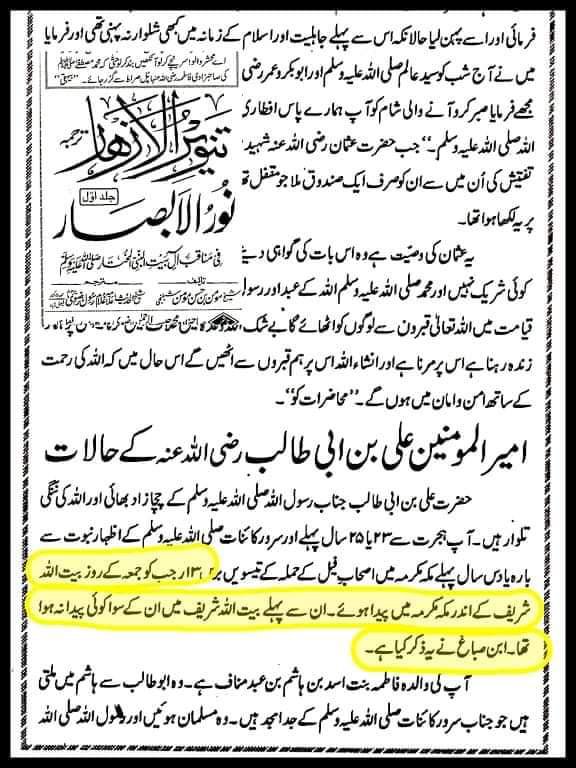 فرمائی اور اسے پہن لیا حالانکہ اس سے پہلے جاہلیت اور اسلام کے زمانہ میں کبھی شلوار نہ پہنی تھی اور فرمایا
میں نے آج شب کو سید عالم صلی اللہ علیہ وسلم اور ابوبکر و عمر رضی
مجھے فرمایا صبر کرو آنے والی شام کو آپ ہمارے پاس افطاری
اللہ صلی اللہ علیہ وسلم۔" جب حضرت عثمان رضی اللہ عنہ شہید
تفتیش کی اُن میں سے ان کو صرف ایک صندوق ملا جو مقفل تھا
پر یہ لکھا ہوا تھا۔
یہ عثمان کی وصیت ہے وہ اس بات کی گواہی دیتے
کوئی شریک نہیں اور محمد صلی اللہ علیہ وسلم اللہ کے عبد اور رسول
قیامت میں اللہ تعالیٰ قبروں سے لوگوں کو اٹھائے گا بے شک
زندہ رہنا ہے اس پر مرنا ہے اور انشاء اللہ اس پر ہم قبروں سے اٹھیں گے اس حال میں کہ اللہ کی رحمت
کے ساتھ امن و امان میں ہوں گے۔ "محاضرات کو"۔
کی صاحبزادی فاطمہ رضی اللہ عنہا پل صراط سے گزر جائے۔
تنویر الازھار
ترجمہ
جلد اوّل
نُورُ الاَبصار
فی مناقب آل بیت النبی المختار صلی اللہ علیہ وسلم
تالیف
مترجم
شیخ مومن بن حسن مومن شبلنجی
امیر المومنین علی بن ابی طالب رضی اللہ عنہ کے حالات
حضرت علی بن ابی طالب جناب رسول اللہ صلی اللہ علیہ وسلم کے چچا زاد بھائی اور اللہ کی ننگی
تلوار ہیں۔ آپ ہجرت سے ۲۳ یا ۲۵ سال پہلے اور سرور کائنات صلی اللہ علیہ وسلم کے اظہار نبوت سے
بارہ یا دس سال پہلے مکہ مکرمہ میں اصحاب فیل کے حملہ کے تیسویں برس ۱۳؍ رجب کو جمعہ کے روز بیت اللہ
شریف کے اندر مکہ مکرمہ میں پیدا ہوئے۔ ان سے پہلے بیت اللہ شریف میں ان کے سوا کوئی پیدا نہ ہوا
تھا۔ ابن صباغ نے یہ ذکر کیا ہے۔
آپ کی والدہ فاطمہ بنت اسد بن ہاشم بن عبد مناف ہے۔ وہ ابو طالب سے ہاشم میں ملتی
ہیں جو جناب سرور کائنات صلی اللہ علیہ وسلم کے جد امجد ہیں۔ وہ مسلمان ہوئیں اور رسول اللہ صلی اللہ